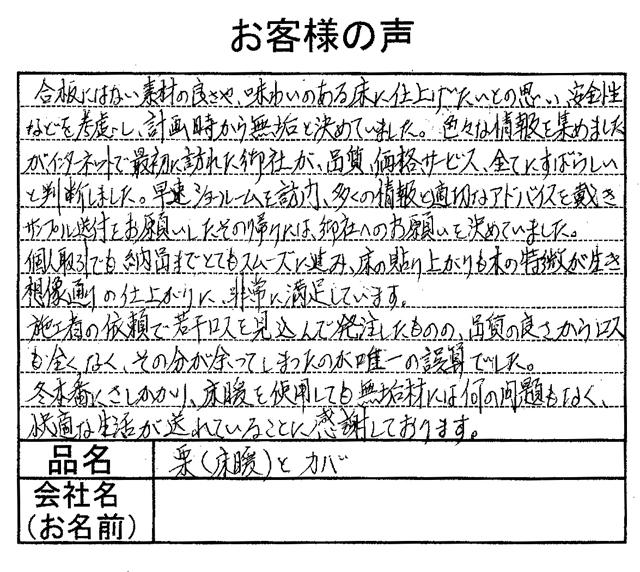 お客様の声
合板にはない素材の良さや、味わいのある床に仕上げたいとの思い、安全性
などを考慮し、計画時から無垢と決めていました。色々な情報を集めました
がインターネットで最初に訪れた御社が、品質、価格、サービス、全てにすばらしい
と判断しました。早速ショールームを訪問、多くの情報と適切なアドバイスを戴き
サンプル送付をお願いしたその帰りには、御社へのお願いを決めていました。
個人取引でも納品までとてもスムーズに進み、床の貼り上がりも木の特徴が生き
想像通りの仕上がりに、非常に満足しています。
施工者の依頼で若干ロスを見込んで発注したものの、品質の良さからロス
も全くなく、その分が余ってしまったのが唯一の誤算でした。
冬本番にさしかかり、床暖を使用しても無垢材には何の問題もなく、
快適な生活が送れていることに感謝しております。
品名 栗(床暖)とカバ
会社名
(お名前)